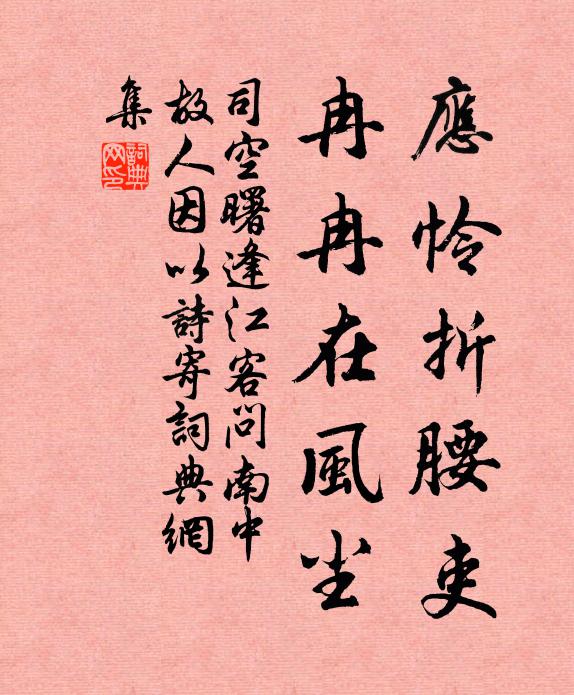 應怜折腰吏
冉冉在風尘
司空曙逢江客問南中
故人因以詩寄詞典網
集
詞典網印